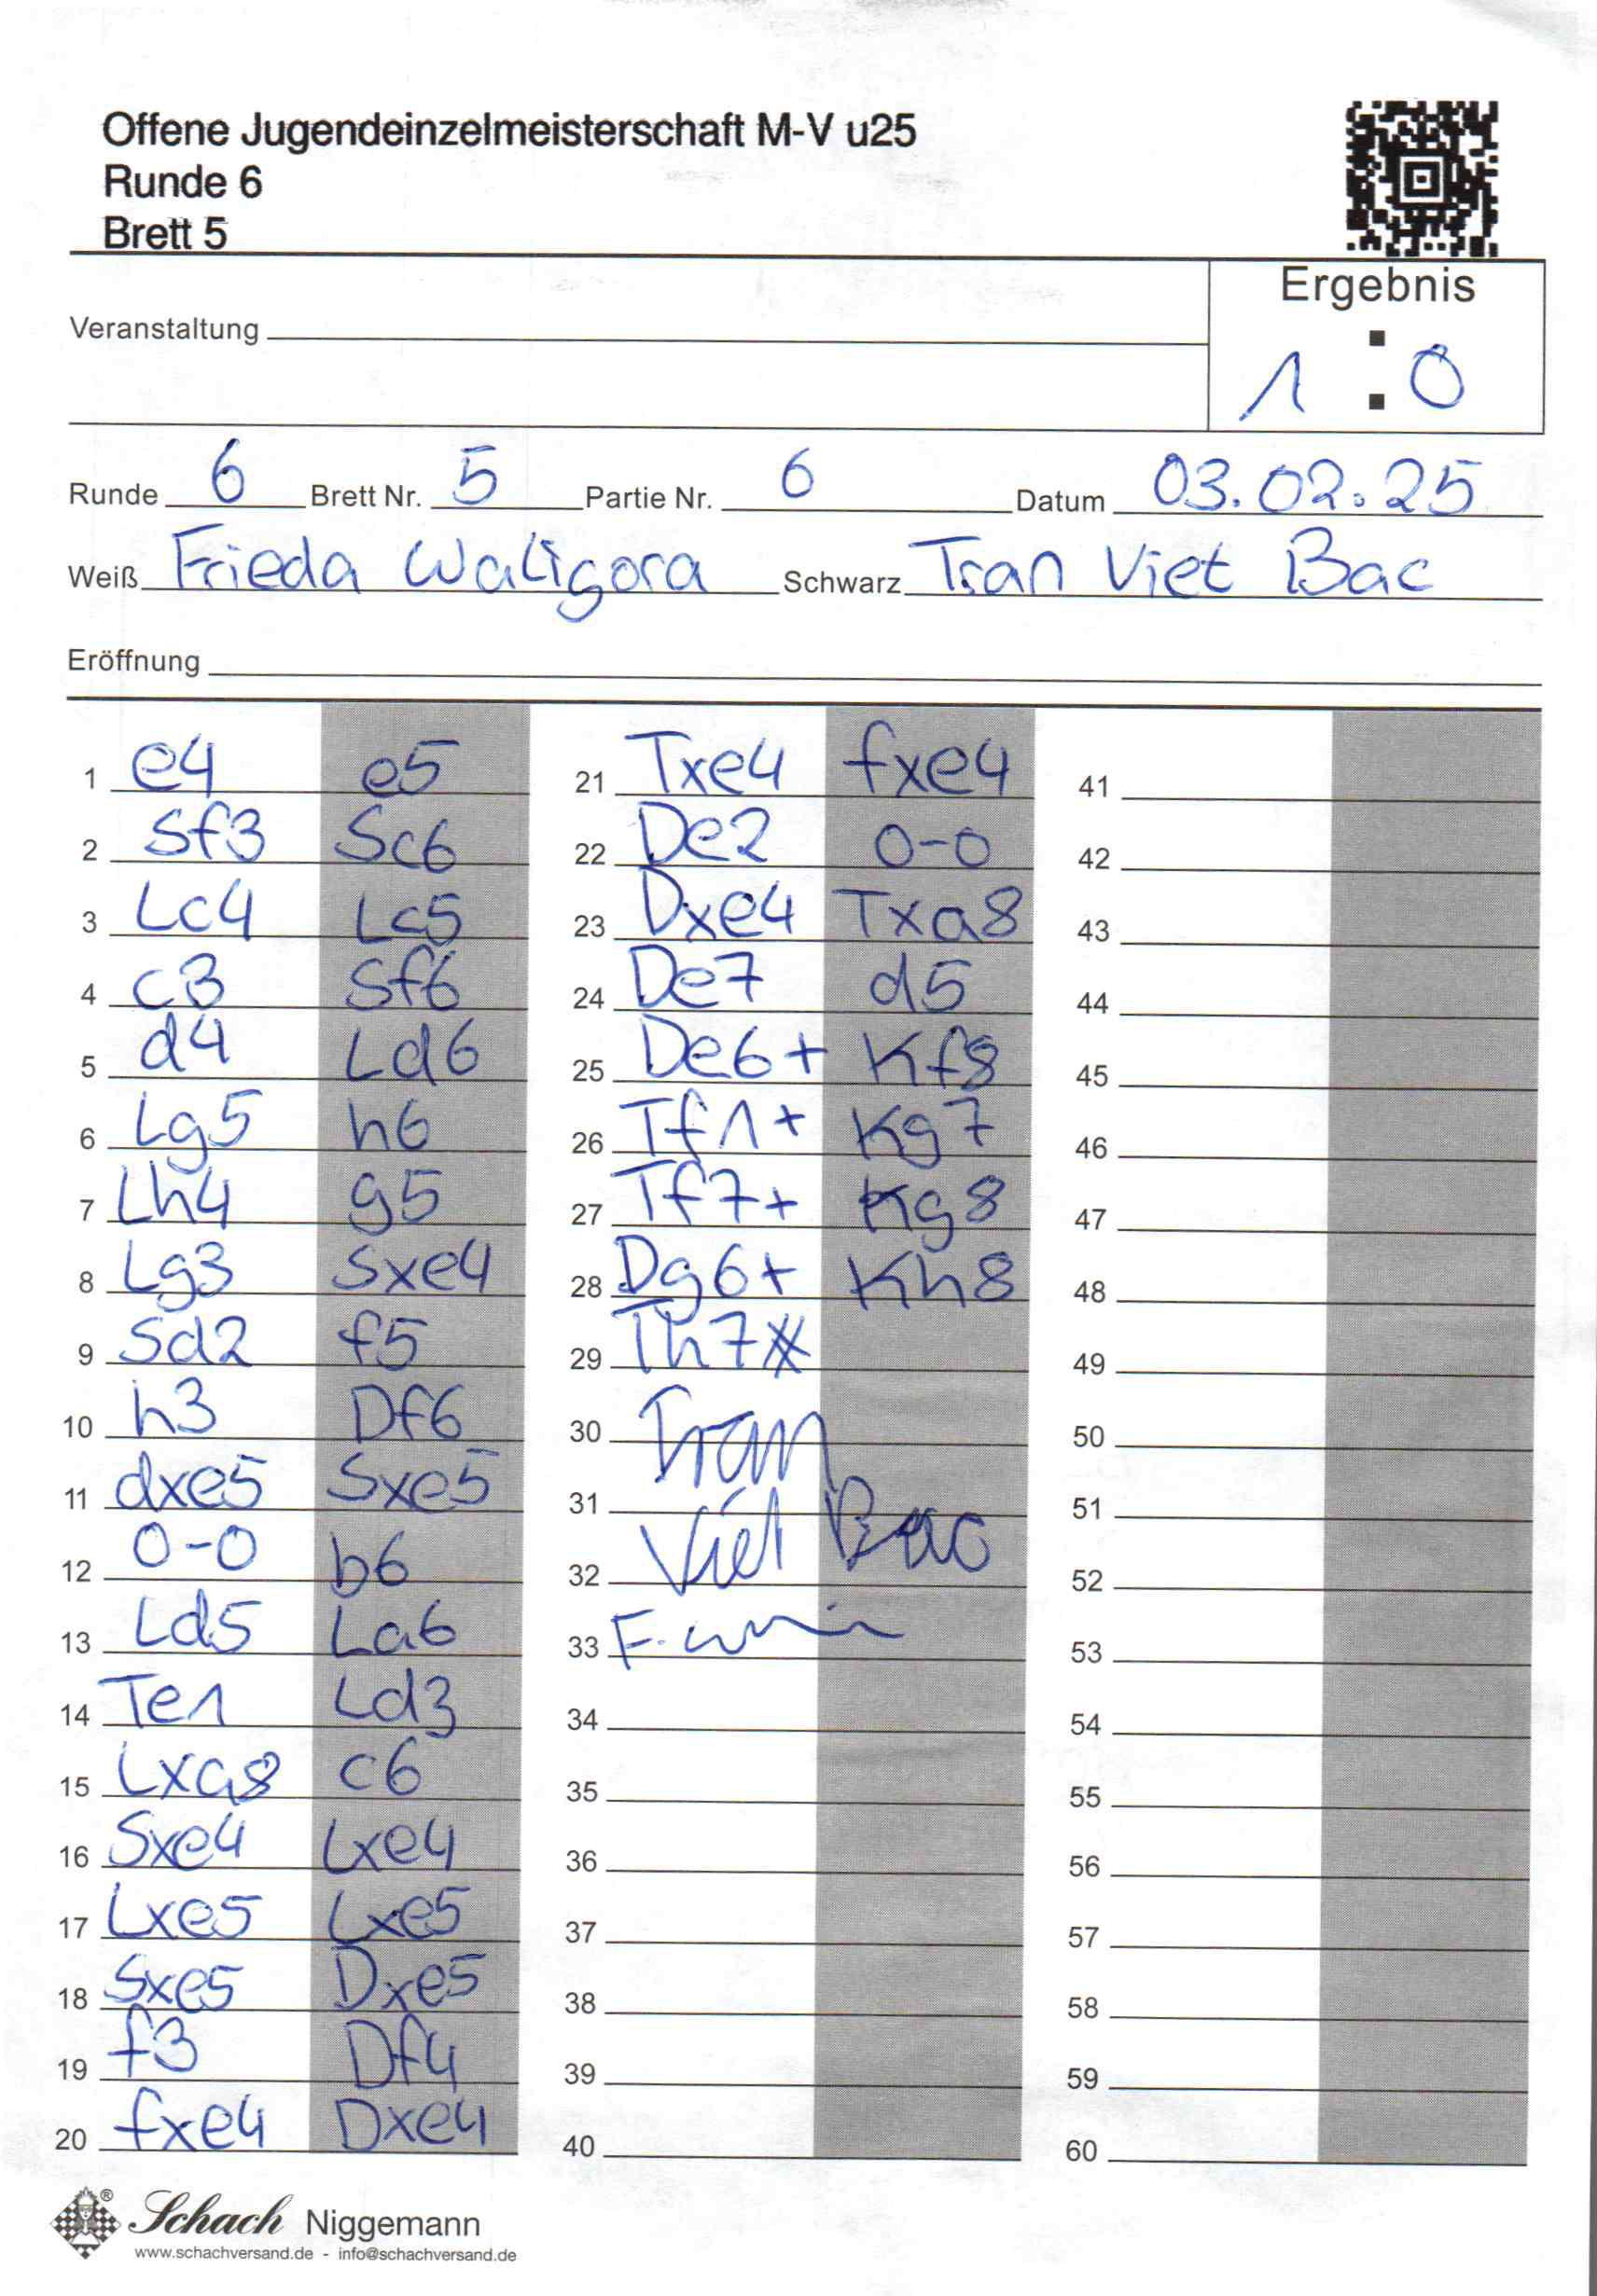 Offene Jugendeinzelmeisterschaft M-V u25
Runde 6
Brett 5
Ergebnis
Veranstaltung
1 : 0
Runde 6 Brett Nr. 5 Partie Nr. 6 Datum 03.02.25
Weiß Frieda Waligora Schwarz Tran Viet Bac
Eröffnung
1 e4 e5
2 Sf3 Sc6
3 Lc4 Lc5
4 c3 Sf6
5 d4 Ld6
6 Lg5 h6
7 Lh4 g5
8 Lg3 Sxe4
9 Sd2 f5
10 h3 Df6
11 dxe5 Sxe5
12 0-0 b6
13 Ld5 La6
14 Te1 Ld3
15 Lxa8 c6
16 Sxe4 Lxe4
17 Lxe5 Lxe5
18 Sxe5 Dxe5
19 f3 Df4
20 fxe4 Dxe4
21 Txe4 fxe4
22 De2 0-0
23 Dxe4 Txa8
24 De7 d5
25 De6+ Kf8
26 Tf1+ Kg7
27 Tf7+ Kg8
28 Dg6+ Kh8
29 Th7#
30 Tran
31
32 Viet Bac
33
34
35
36
37
38
39
40
41
42
43
44
45
46
47
48
49
50
51
52
53
54
55
56
57
58
59
60
Schach Niggemann
www.schachversand.de - info@schachversand.de